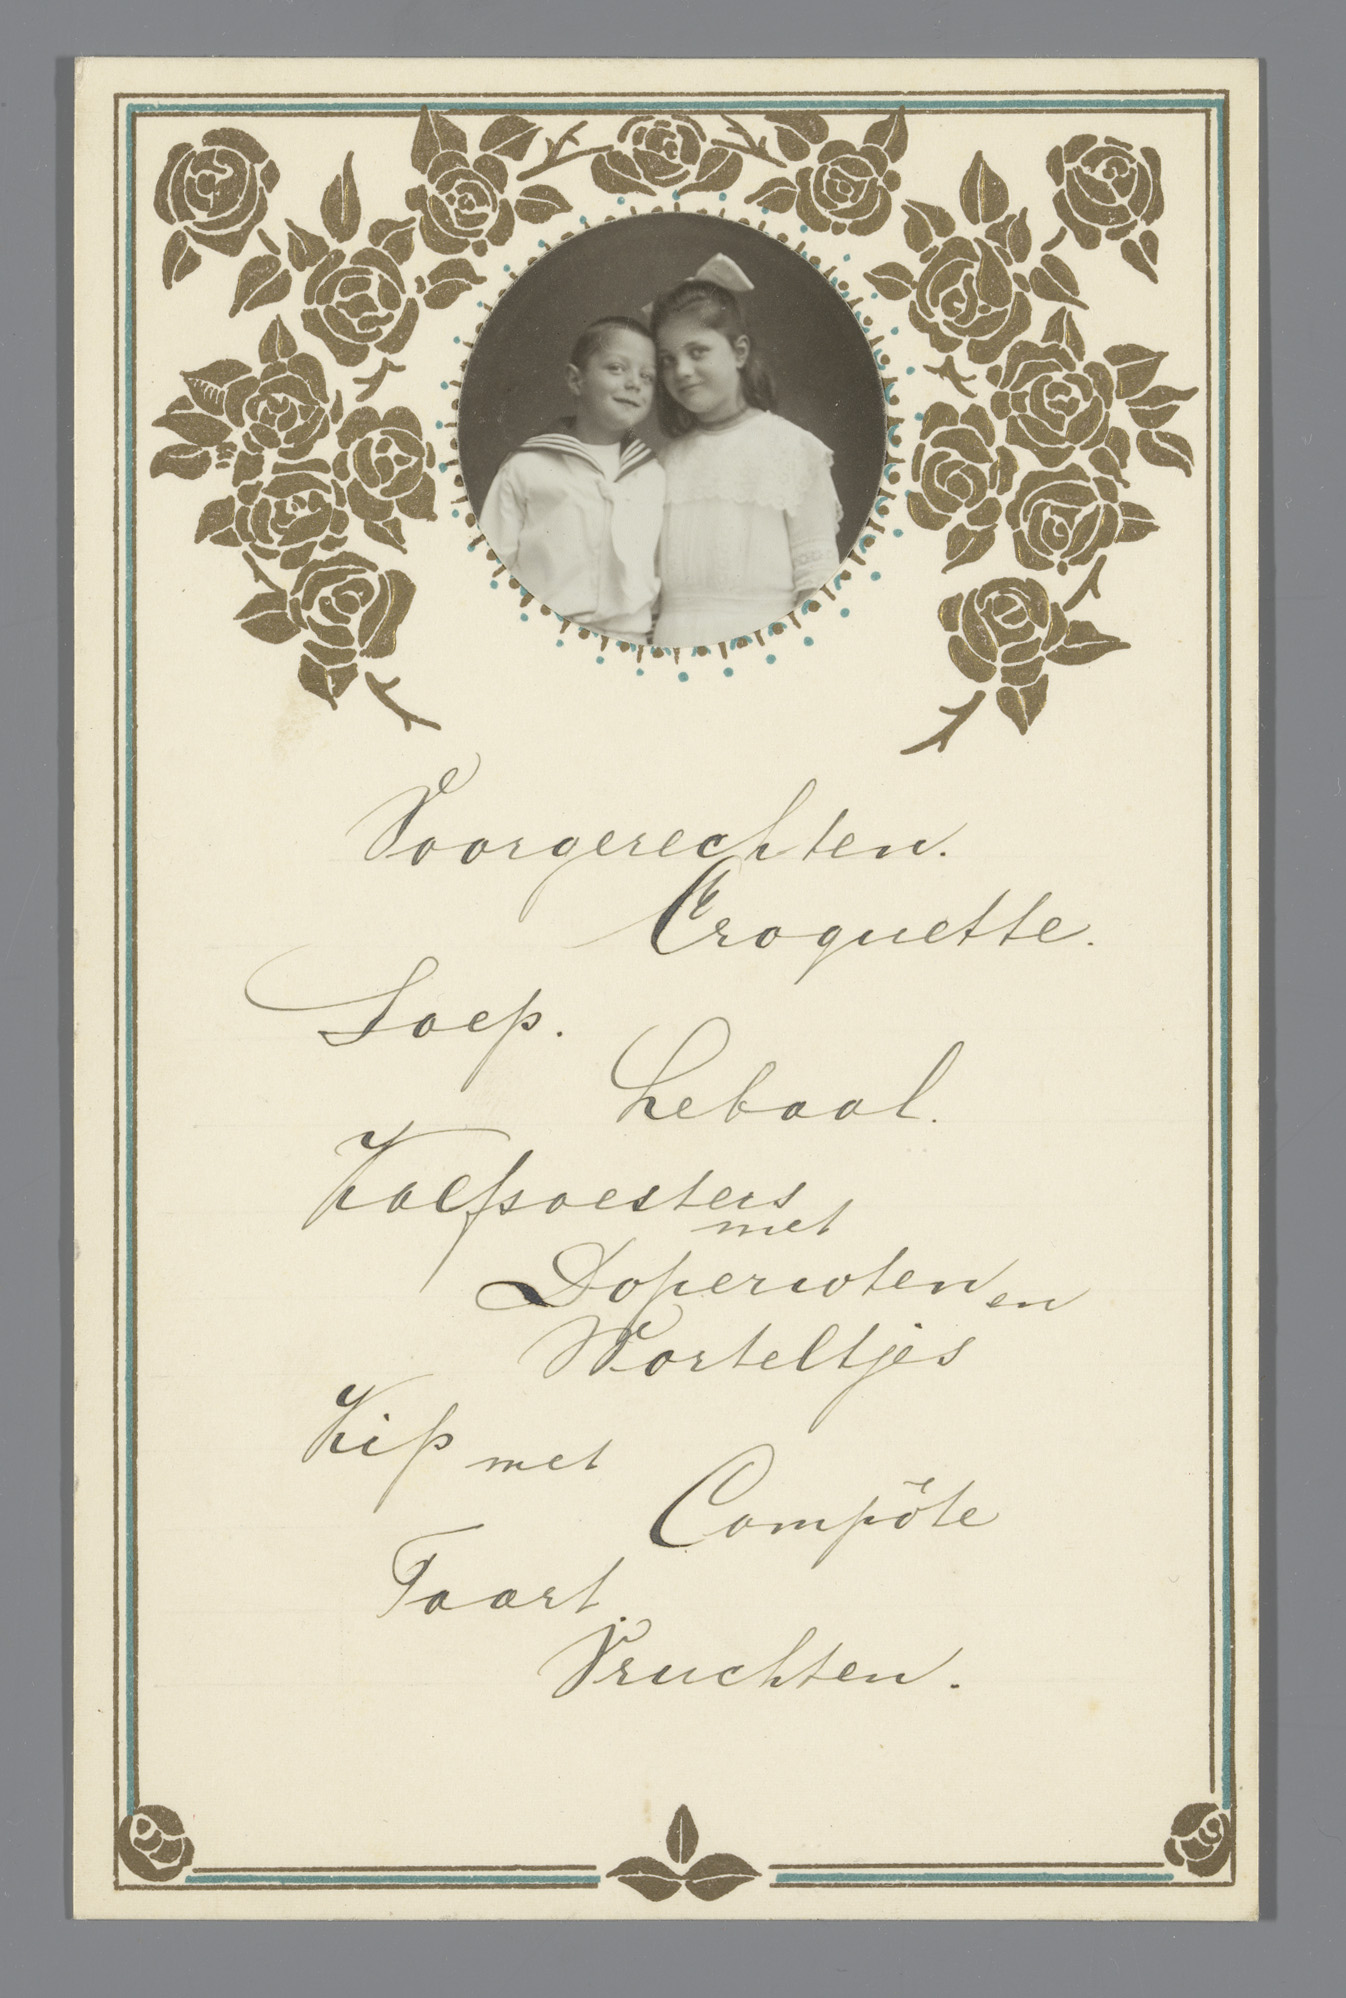 Voorgerechten.
Croquette.
Soep.
Lebaal.
Kalfsoesters
met
Doperwten en
Worteltjes
Kip met
Compôte
Taart.
Vruchten.